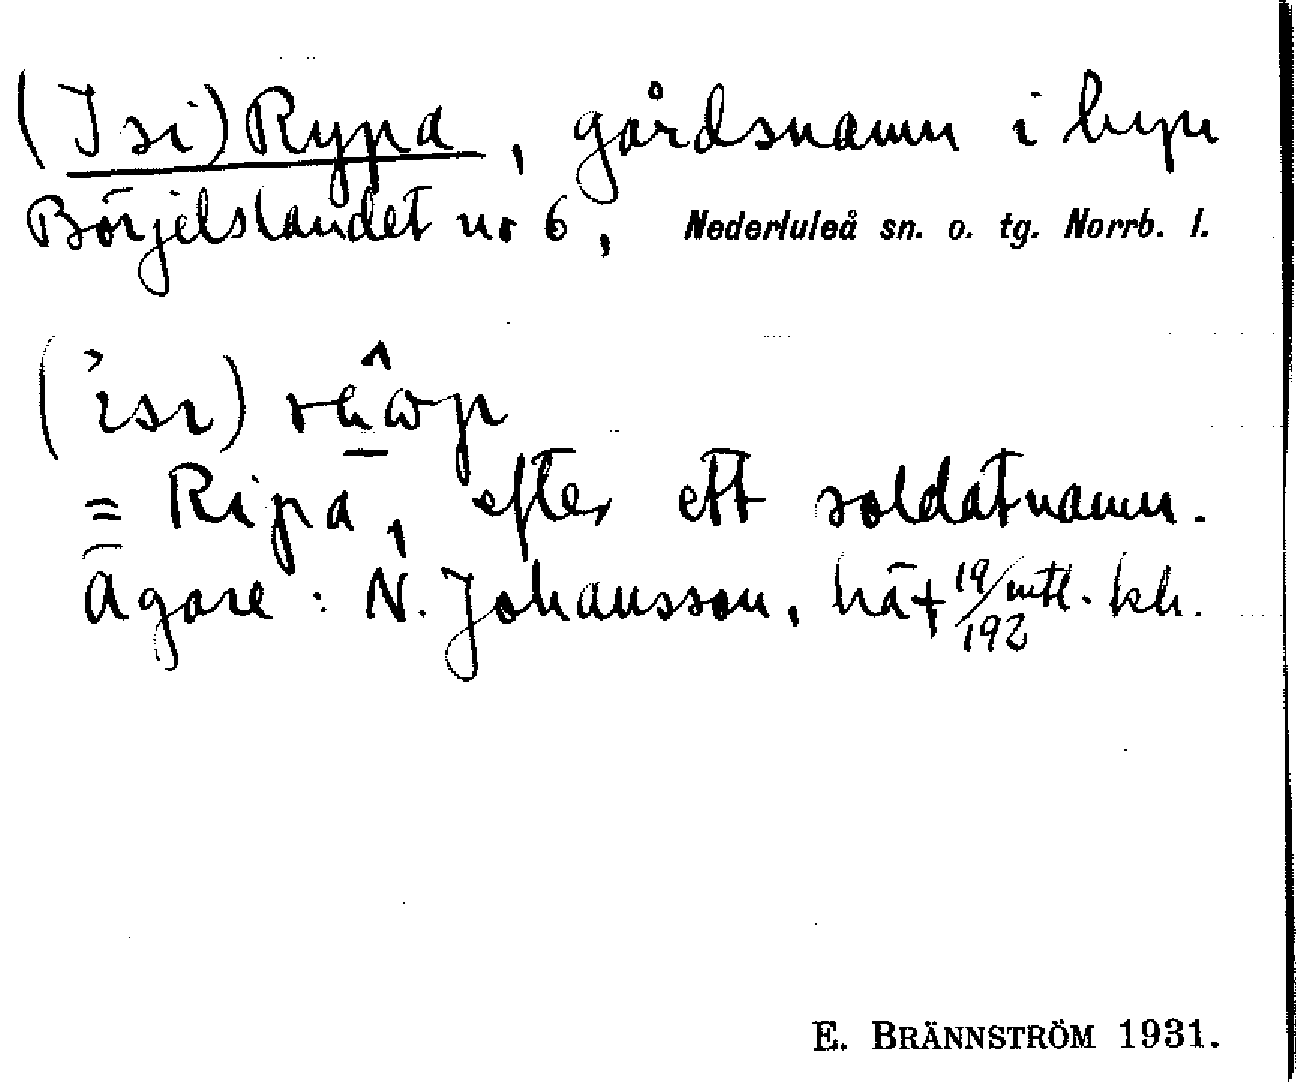 (Isi) Rypa, gårdsnamn i byn
Börjelslandet nr 6, Nederluleå sn. o. tg. Norrb. l.
= Ripa, efter ett soldatnamn.
Ägare: N. Johansson, 19/192 mtl. kh.
E. BRÄNNSTRÖM 1931.